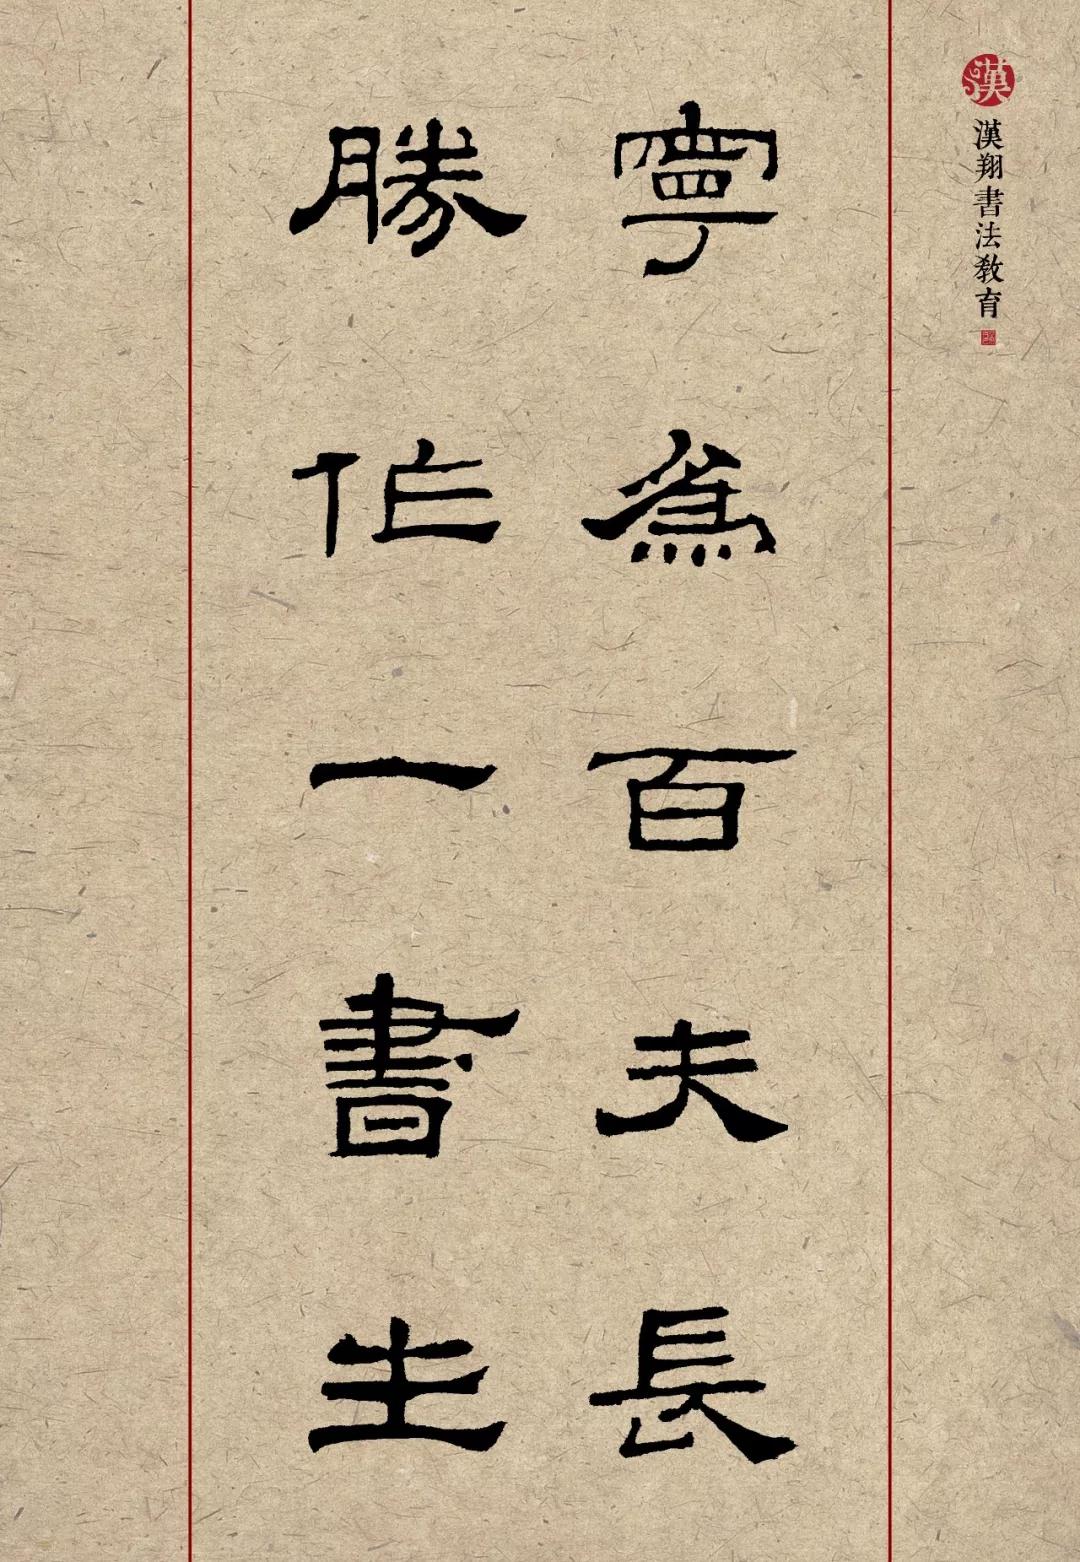 漢
漢翔書法教育
寧為百夫長
勝作一書生